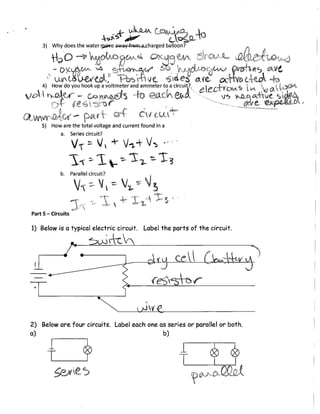 twist when coming
close to
3) Why does the water move away from a charged balloon?
H₂O → hydrogen & oxygen share electrons
- oxygen is stronger so hydrogen protons are
"uncovered." Positive sides are attracted to
4) How do you hook up a voltmeter and ammeter to a circuit?
electrons in balloon
voltmeter - connects to each end
vs negative sides
of resistor
are expelled.
ammeter - part of circuit
5) How are the total voltage and current found in a
a. Series circuit?
V_T = V₁ + V₂ + V₃ ....
I_T = I₁ = I₂ = I₃
b. Parallel circuit?
V_T = V₁ = V₂ = V₃
I_T = I₁ + I₂ + I₃ ..
Part 5 – Circuits
1) Below is a typical electric circuit. Label the parts of the circuit.
switch
dry cell (battery)
resistor
wire
2) Below are four circuits. Label each one as series or parallel or both.
a) b)
series parallel